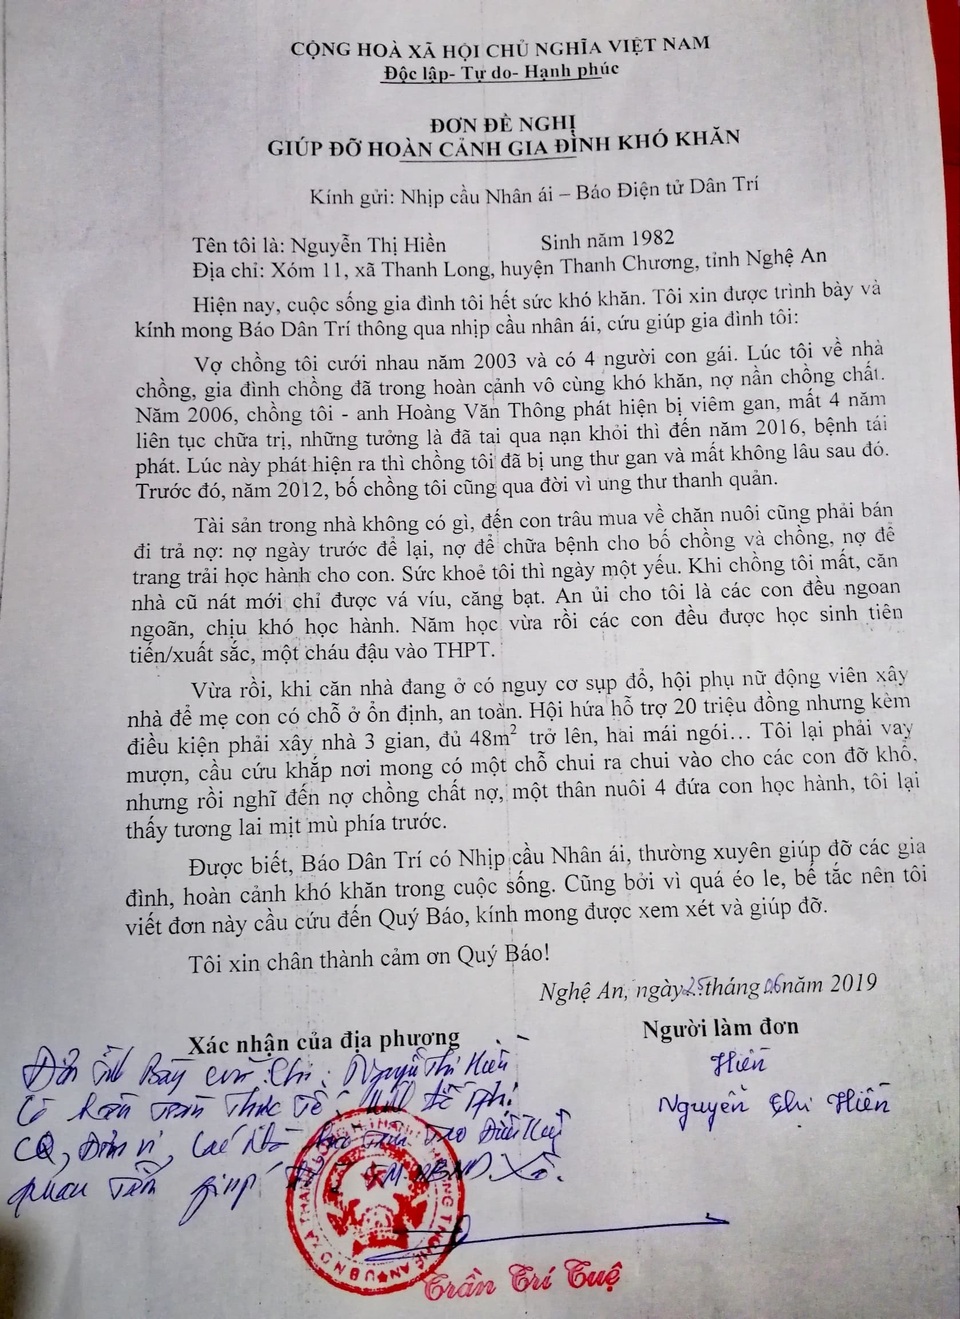 CỘNG HOÀ XÃ HỘI CHỦ NGHĨA VIỆT NAM
Độc lập- Tự do- Hạnh phúc
ĐƠN ĐỀ NGHỊ
GIÚP ĐỠ HOÀN CẢNH GIA ĐÌNH KHÓ KHĂN
Kính gửi: Nhịp cầu Nhân ái – Báo Điện tử Dân Trí
Tên tôi là: Nguyễn Thị Hiền Sinh năm 1982
Địa chỉ: Xóm 11, xã Thanh Long, huyện Thanh Chương, tỉnh Nghệ An
Hiện nay, cuộc sống gia đình tôi hết sức khó khăn. Tôi xin được trình bày và
kính mong Báo Dân Trí thông qua nhịp cầu nhân ái, cứu giúp gia đình tôi:
Vợ chồng tôi cưới nhau năm 2003 và có 4 người con gái. Lúc tôi về nhà
chồng, gia đình chồng đã trong hoàn cảnh vô cùng khó khăn, nợ nần chồng chất.
Năm 2006, chồng tôi - anh Hoàng Văn Thông phát hiện bị viêm gan, mất 4 năm
liên tục chữa trị, những tưởng là đã tai qua nạn khỏi thì đến năm 2016, bệnh tái
phát. Lúc này phát hiện ra thì chồng tôi đã bị ung thư gan và mất không lâu sau đó.
Trước đó, năm 2012, bố chồng tôi cũng qua đời vì ung thư thanh quản.
Tài sản trong nhà không có gì, đến con trâu mua về chăn nuôi cũng phải bán
đi trả nợ: nợ ngày trước để lại, nợ để chữa bệnh cho bố chồng và chồng, nợ để
trang trải học hành cho con. Sức khoẻ tôi thì ngày một yếu. Khi chồng tôi mất, căn
nhà cũ nát mới chỉ được vá víu, căng bạt. An ủi cho tôi là các con đều ngoan
ngoãn, chịu khó học hành. Năm học vừa rồi các con đều được học sinh tiên
tiến/xuất sắc, một cháu đậu vào THPT.
Vừa rồi, khi căn nhà đang ở có nguy cơ sụp đổ, hội phụ nữ động viên xây
nhà để mẹ con có chỗ ở ổn định, an toàn. Hội hứa hỗ trợ 20 triệu đồng nhưng kèm
điều kiện phải xây nhà 3 gian, đủ 48m² trở lên, hai mái ngói… Tôi lại phải vay
mượn, cầu cứu khắp nơi mong có một chỗ chui ra chui vào cho các con đỡ khổ,
nhưng rồi nghĩ đến nợ chồng chất nợ, một thân nuôi 4 đứa con học hành, tôi lại
thấy tương lai mịt mù phía trước.
Được biết, Báo Dân Trí có Nhịp cầu Nhân ái, thường xuyên giúp đỡ các gia
đình, hoàn cảnh khó khăn trong cuộc sống. Cũng bởi vì quá éo le, bế tắc nên tôi
viết đơn này cầu cứu đến Quý Báo, kính mong được xem xét và giúp đỡ.
Tôi xin chân thành cảm ơn Quý Báo!
Nghệ An, ngày 25 tháng 06 năm 2019
Xác nhận của địa phương Người làm đơn
Hiền
Nguyễn Thị Hiền
Bày của Chị: Nguyễn Thị Hiền
thực tế
CQ, Đơn vị
quan tâm giúp TM. UBND Xã.
Trần Trí Tuệ